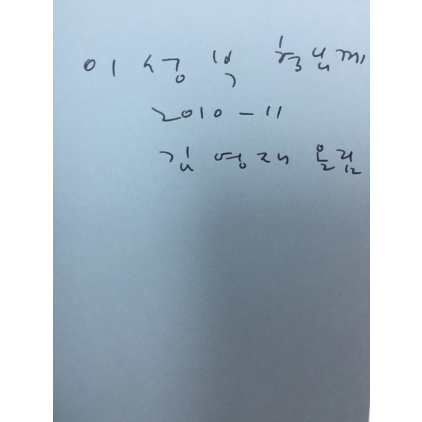 이성복 형님께
2010-11
김영재 올림